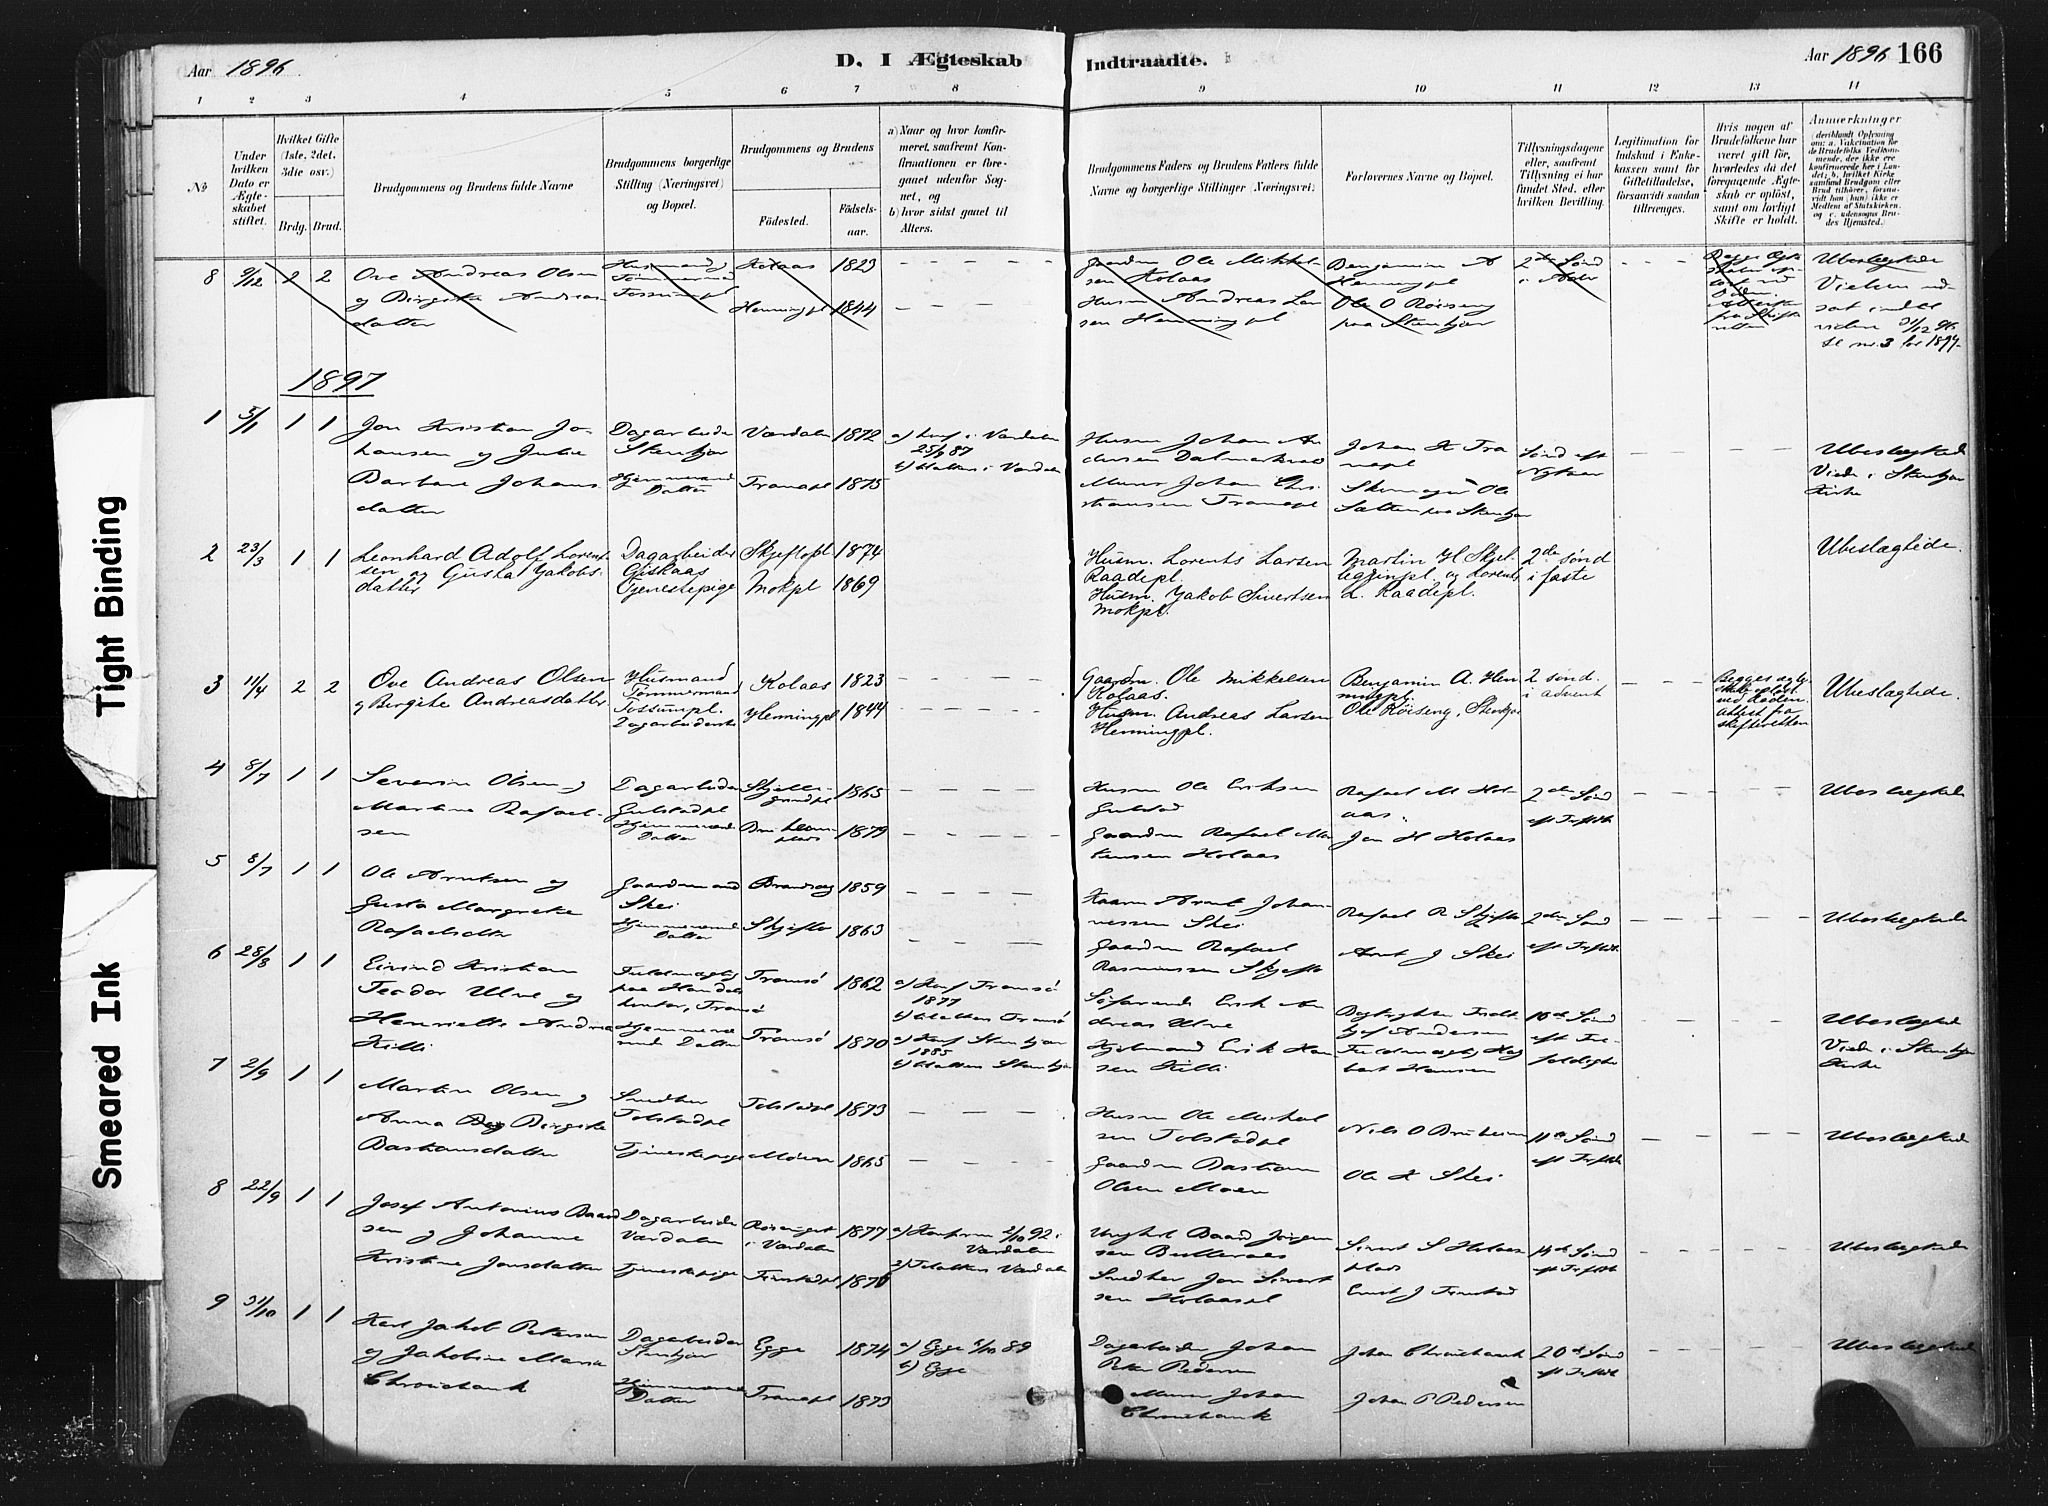 Aar 1896
D. I Ægteskab
Indtraadte.
Aar 1896 166
1 2 3 4 5 6 7 8 9 10 11 12 13 14
No
Under hvilken Dato er Ægteskabet stiftet.
Hvilket Gifte (1ste, 2det, 3die osv.)
Brdg. Brud.
Brudgommens og Brudens fulde Navne
Brudgommens borgerlige Stilling (Næringsvei) og Bopæl.
Brudgommens og Brudens
Födested.
Födsels-aar.
a) Naar og hvor konfirmeret, saafremt Konfirmationen er foregaaet udenfor Sognet, og
b) hvor sidst gaaet til Alters.
Brudgommens Faders og Brudens Faders fulde Navne og borgerlige Stillinger (Næringsvei).
Forlovernes Navne og Bopæl.
Tillysningsdagene eller, saafremt Tillysning ei har fundet Sted, efter hvilken Bevilling.
Legitimation for Indskud i Enkekassen samt for Giftetilladelse, forsaavidt saadan tiltrænges.
Hvis nogen af Brudefolkene har været gift för, hvorledes da det foregaaende Ægteskab er oplöst, samt om lovligt Skifte er holdt.
Anmerkninger
(deriblandt Oplysning om: a. Vakcination for de Brudefolks Vedkommende, der ikke ere konfirmerede her i Landet; b. hvilket Kirkesamfund Brudgom eller Brud tilhörer, forsaavidt han (hun) ikke er Medlem af Statskirken, og c. udensogns Brudes Hjemsted.)
8 9/12 2 2
Ove Andreas Olsen
og Birgitte Andreas
datter
Husmand,
Tømmermand
Tossumpl
Kolaas 1823
Henningpl 1844
Gaardm Ole Mikkel
sen Kolaas
Husm Andreas Lar
sen Henningpl
Benjamin A
Henningpl
Ole O Røiseng
paa Stenkjær
2den Sønd
i Adv
Ubeslægtede
Vielsen ud
sat indtil
videre 31/12 96
Se nr. 3 for 1897
1897
1 5/1 1 1
Jon Kristian Jo-
hansen og Julie
Barbara Johans
datter
Dagarbeider
Stenkjær
Hjemmeværende
Datter
Værdalen 1872
Tranapl 1875
a) konf i Værdalen
b) Altters i Værdal
Husm Johan An
dersen Dalmarksvald
Murer Johan Chri
stiansen Tranapl
Johan K Tra
napl
Skomager Ole
Sætter paa Stenkjær
Sønd eft
Nytaar
Ubeslægtede
Viede i Stenkjær
Kirke
2 23/3 1 1
Leonhard Adolf Lorent-
sen og Gusta Jakobs-
datter
Dagarbeider
Giskaas
Tjenestepige
Skjeflopl 1874
Mokpl 1869
Husm. Lorents Larsen
Raadepl.
Husm. Jakob Sivertsen
Mokpl.
Martin H Skjel-
legrinpl, og Lorents
L. Raadepl.
2de sønd
i faste
Ubeslægtede.
3 11/4 2 2
Ove Andreas Olsen
og Birgite Andreasdatter
Husmand
Tømmermand
Tossumpl.
Dagarbeiderske
Kolaas 1823
Henningpl 1844
Gaardm. Ole Mikkelsen
Kolaas.
Husm. Andreas Larsen
Henningpl.
Benjamin A. Hen
ningpl.
Ole Røiseng, Stenkjær
2 sønd.
i advent
Begges ægte
skab opløst
ved døden.
attest fra
skifteretten
Ubeslægtede.
4 8/7 1 1
Severin Olsen og
Martine Rafael-
sen
Dagarbeider
Gulstadpl
Hjemmeværende
Datter
Skjelle-
grindpl 1865
1879
Husm Ole Eriksen
Gulstad
Gaardm Rafael Mor
tensen Holaas
Rafael M Hol-
aas
Jon H Holaas
2den Sønd
eft Trefold
Ubeslægtede
5 8/7 1 1
Ole Arntsen og
Gusta Margrete
Rafaelsdtter
Gaardmand
Skei
Hjemmeværende
Datter
Brandsæg 1859
Skjefte 1863
Kaarm Arnt Johan
nessen Skei
Gaardm Rafael
Rasmussen Skjefte
Rafael R Skjefte
Arnt J Skei
2den Sønd
eft Trefold
Ubeslægtede
6 28/8 1 1
Eivind Kristian
Teodor Ulve og
Henriette Andrea
Killi
Fuldmægtig
paa Handels
kontor, Tromsø
Hjemmevæ
rende Datter
Tromsø 1862
Tromsø 1870
a) Konf Tromsø
1877
b) Altters Tromsø
a) Konf Stenkjær
1885
b) Altters Stenkjær
Søfarende Erik An
dreas Ulve
Kjøbmand Erik Han
sen Killi
Bogtrykker Fridt
hjof Andersen
Fuldmægtig Hag
bart Hansen
10de Sønd
eft Tre
foldighed
Ubeslægtede
Viede i Stenkjær
Kirke
7 2/9 1 1
Martin Olsen og
Anna Birgitte
Bastiansdatter
Snedker
Tolstadpl
Tjenestepige
Tolstadpl 1873
Moen 1865
Husm Ole Mikal
sen Tolstadpl
Gaardm Bastian
Olsen Moen
Nils O Bruheim
Ole K Skei
11te Sønd
eft Trefold
Ubeslægtede
8 22/9 1 1
Josef Antonius Baard
sen og Johanne
Kristine Jonsdatter
Dagarbeider
Værdalen
Tjenestepige
i Værdalen 1877
Finstadpl 1876
a) Konfirm 2/10 92 i
Værdalen
b) Altters Værdalen
Ungkl Baard Jørgen
sen
Snedker Jon Sivert
sen Holaaspl
Sivert S Holaas
plads
Ernst J Finstad
14de Sønd
eft Trefold
Ubeslægtede
9 31/10 1 1
Karl Jakob Petersen
og Jakobine Maria
Chroichank
Dagarbeider
Stenkjær
Hjemmeværende
Datter
Egge 1874
Tranapl 1873
a) Egge 6/10 89
b) Egge
Dagarbeider Johan
Peter Pedersen
Murer Johan
Chroichank
Johan Chroichank
Johan P Pedersen
20de Sønd
eft Trefold
Ubeslægtede
Tight Binding
Smeared Ink